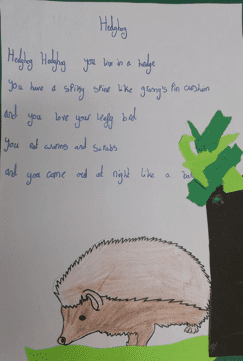 Hedgehog
Hedgehog Hedgehog you live in a hedge
you have a spiky spine like granny's pin cushion
and you love your leafy bed
you eat worms and
and you come out at night like a